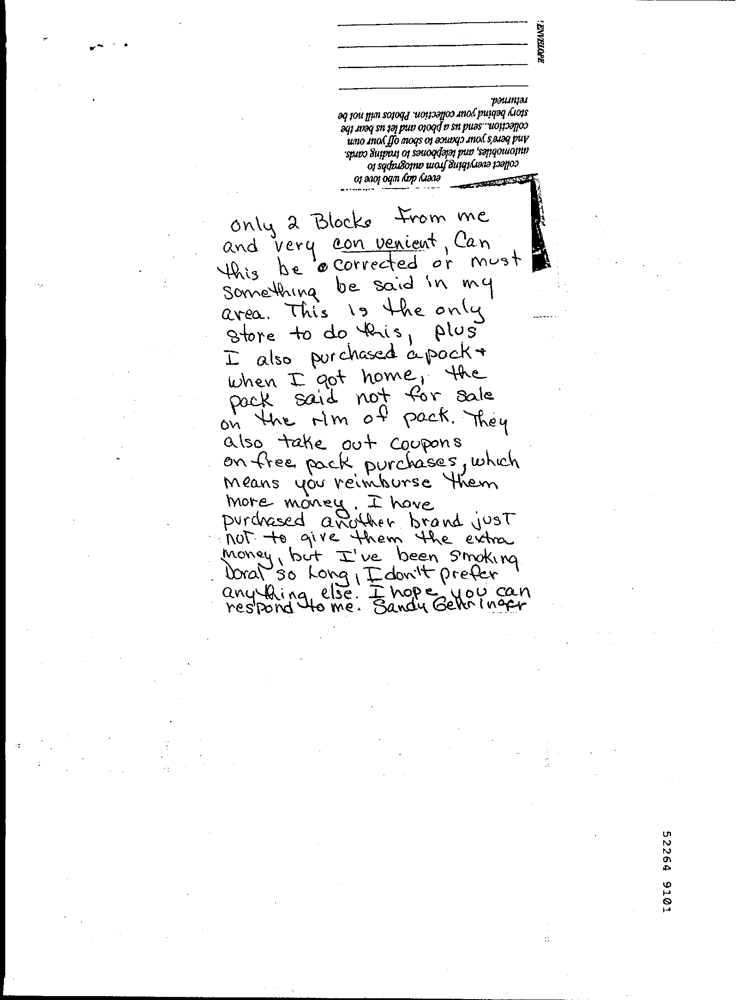 ENVELOPE
every day who love to
collect everything from autographs to
automobiles, and telephones to trading cards.
And here's your chance to show off your own
collection...send us a photo and let us hear the
story behind your collection. Photos will not be
returned.
only 2 Blocks From me
and very con venient, Can
this be corrected or must
something be said in my
area. This is the only
store to do this, plus
I also purchased a pack +
when I got home, the
pack said not for sale
on the rim of pack. They
also take out coupons
on free pack purchases, which
means you reimburse them
more money. I have
purchased another brand just
not to give them the extra
money, but I've been smoking
Doral so Long, I don't prefer
anything else. I hope you can
respond to me. Sandy Gehringer
52264 9101